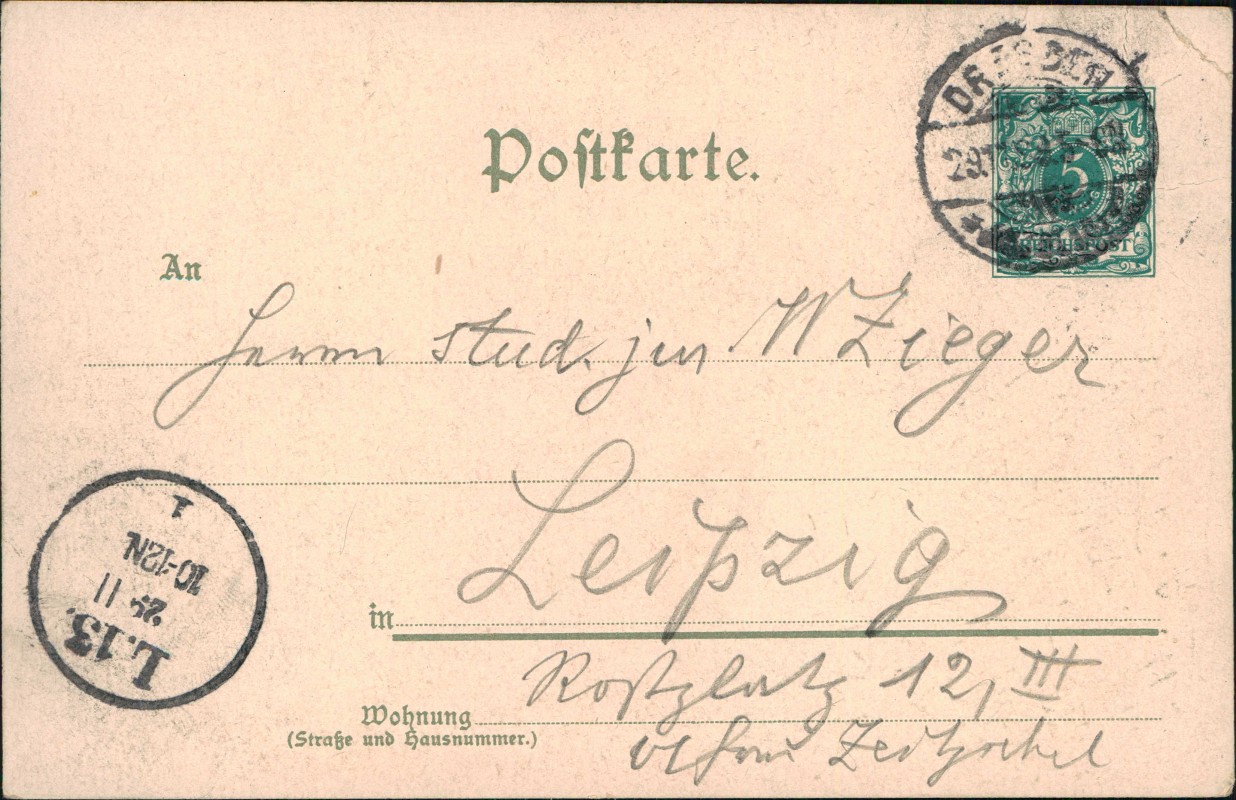 DRESDEN
Postkarte.
5
REICHSPOST
An
Herrn stud. jur W Zieger
Leipzig
in
Roßplatz 12, III
Wohnung
(Straße und Hausnummer.)
b/ Frau
1
10-12N.
29 11
L.13.